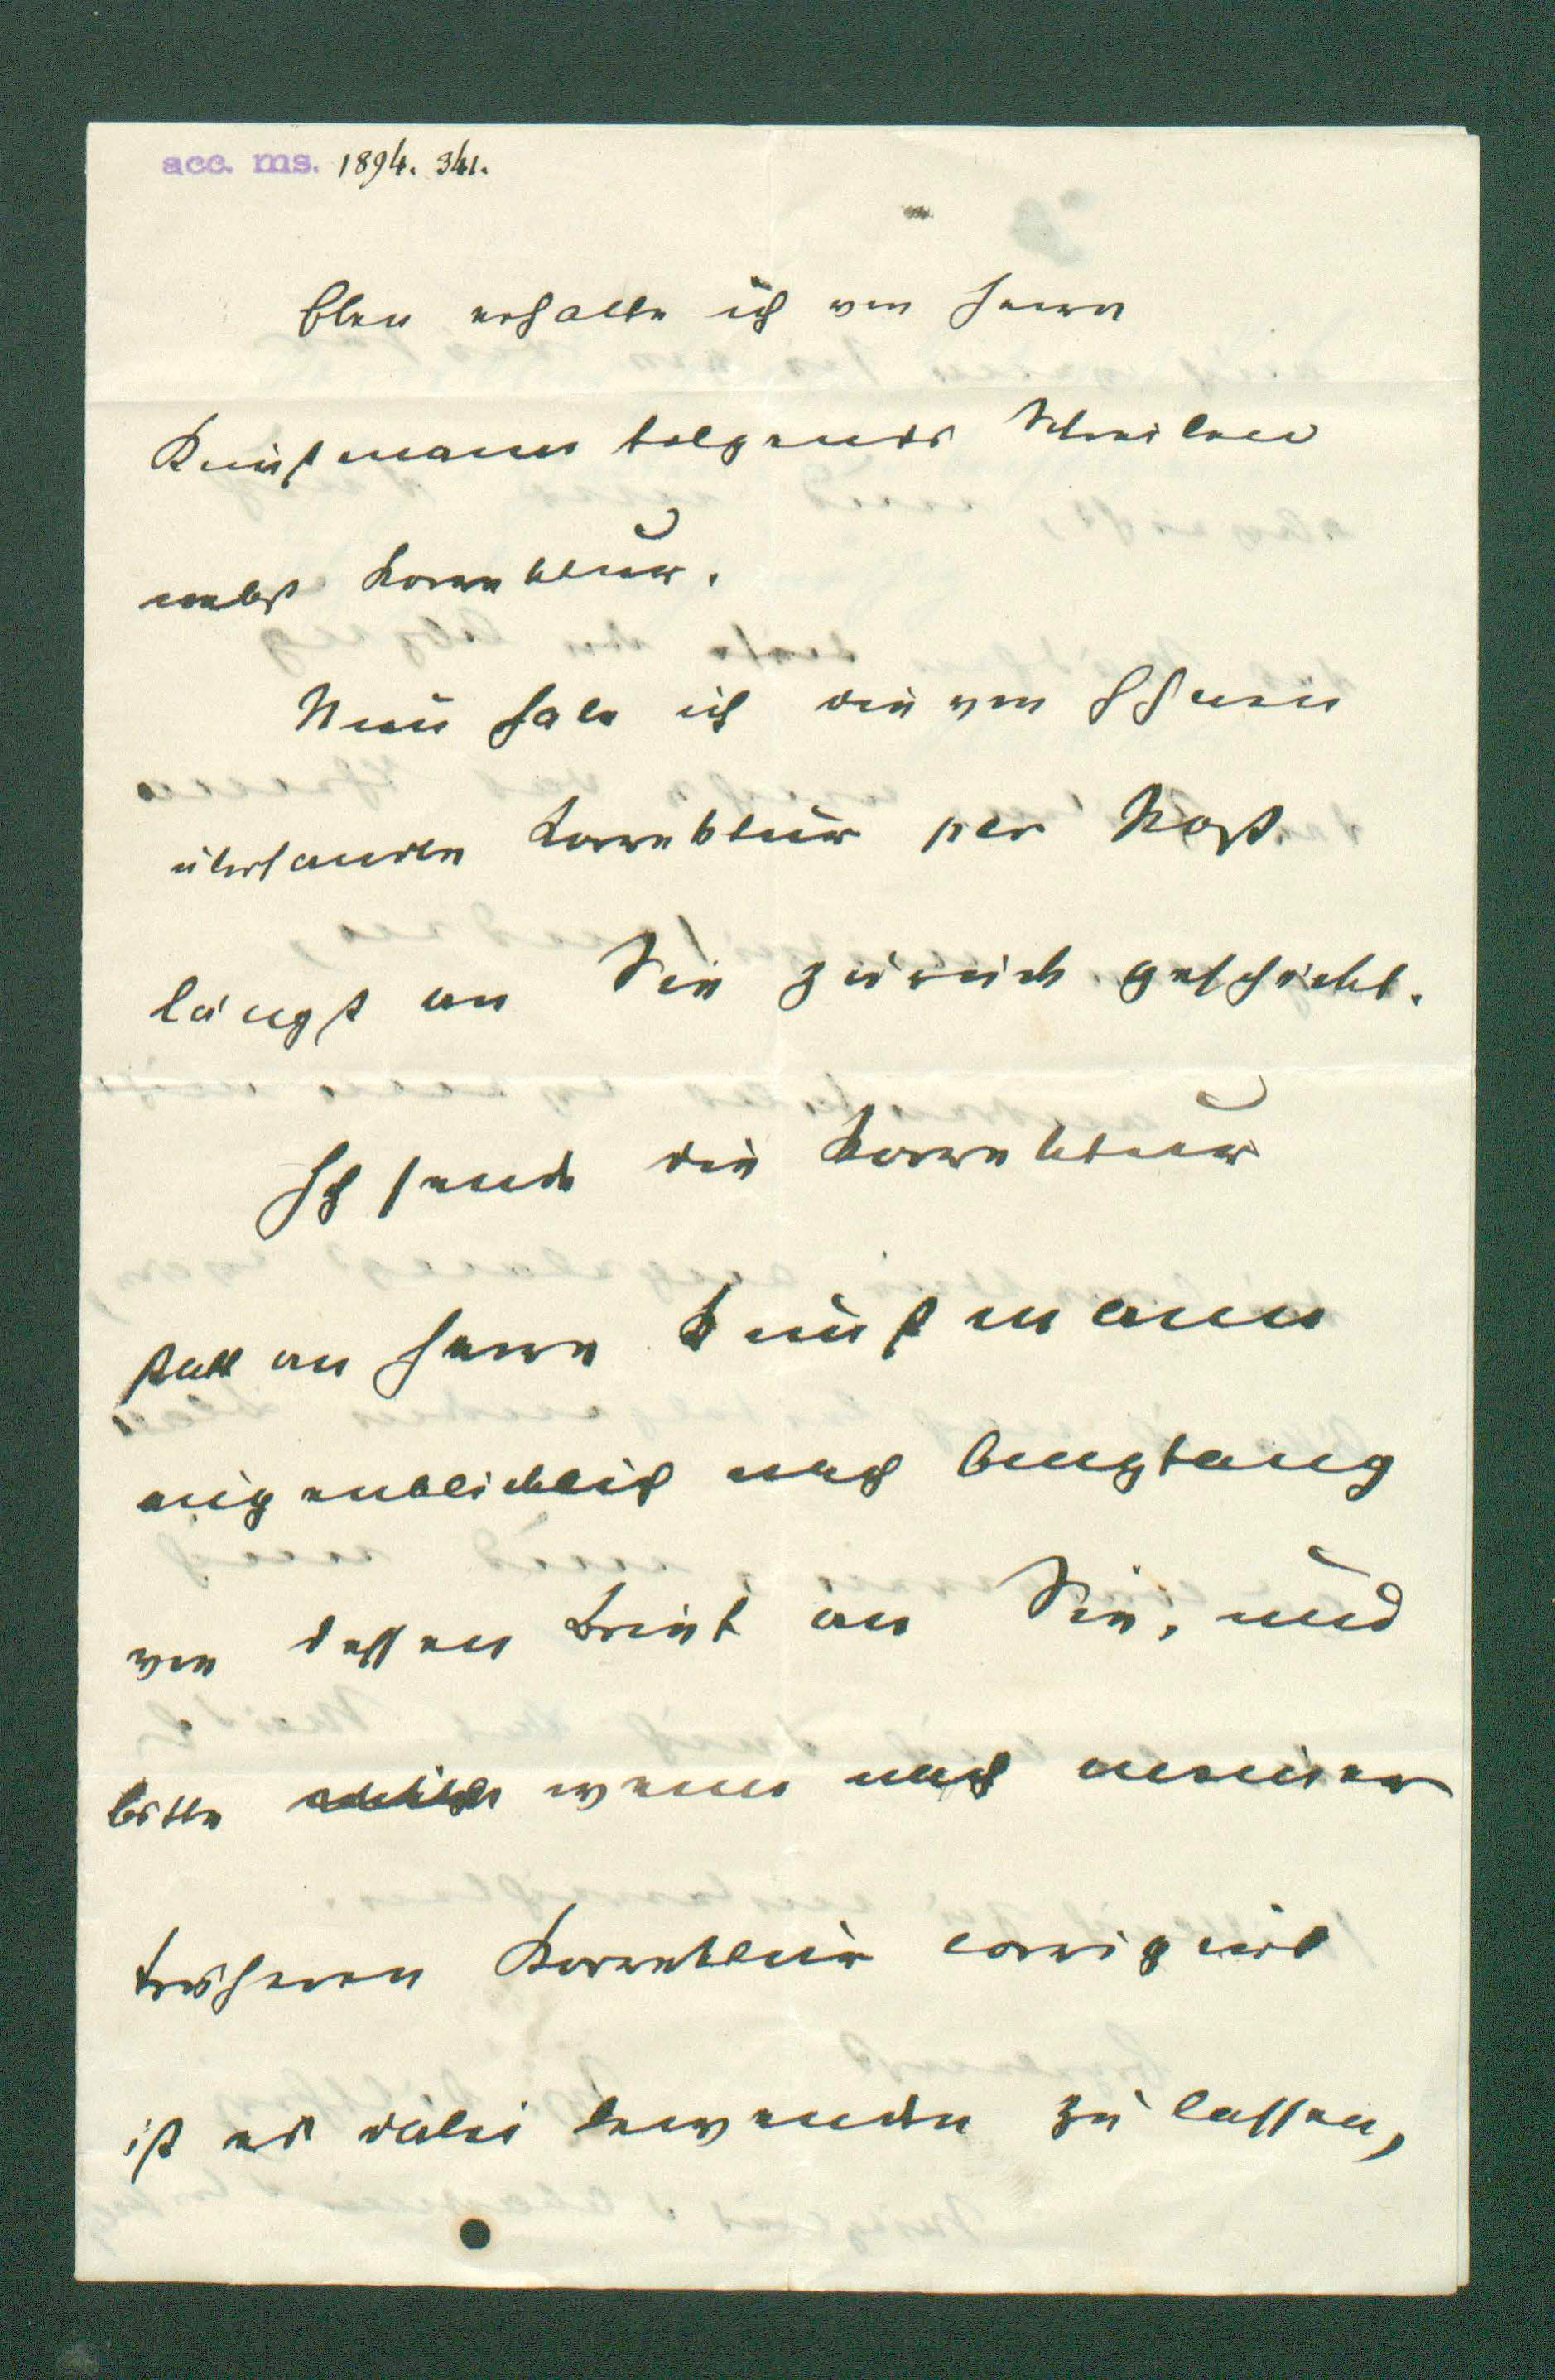 acc. ms. 1894. 341.
Eben erhalte ich von Herrn
Kunstmann folgendes Schreiben
nebst Korrektur.
Nun habe ich die von Ihnen
übersandte Korrektur per Post
längst an Sie zurück geschickt.
Ich sende die Korrektur
statt an Herrn Kunstmann
augenblicklich nach Empfang
von dessen Brief an Sie, und
bitte wenn nach meiner
früheren Korrektur corrigirt
ist es dabei bewenden zu lassen,